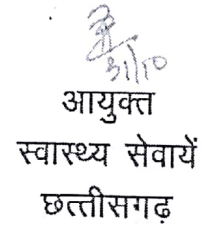 31/10
आयुक्त
स्वास्थ्य सेवायें
छत्तीसगढ़